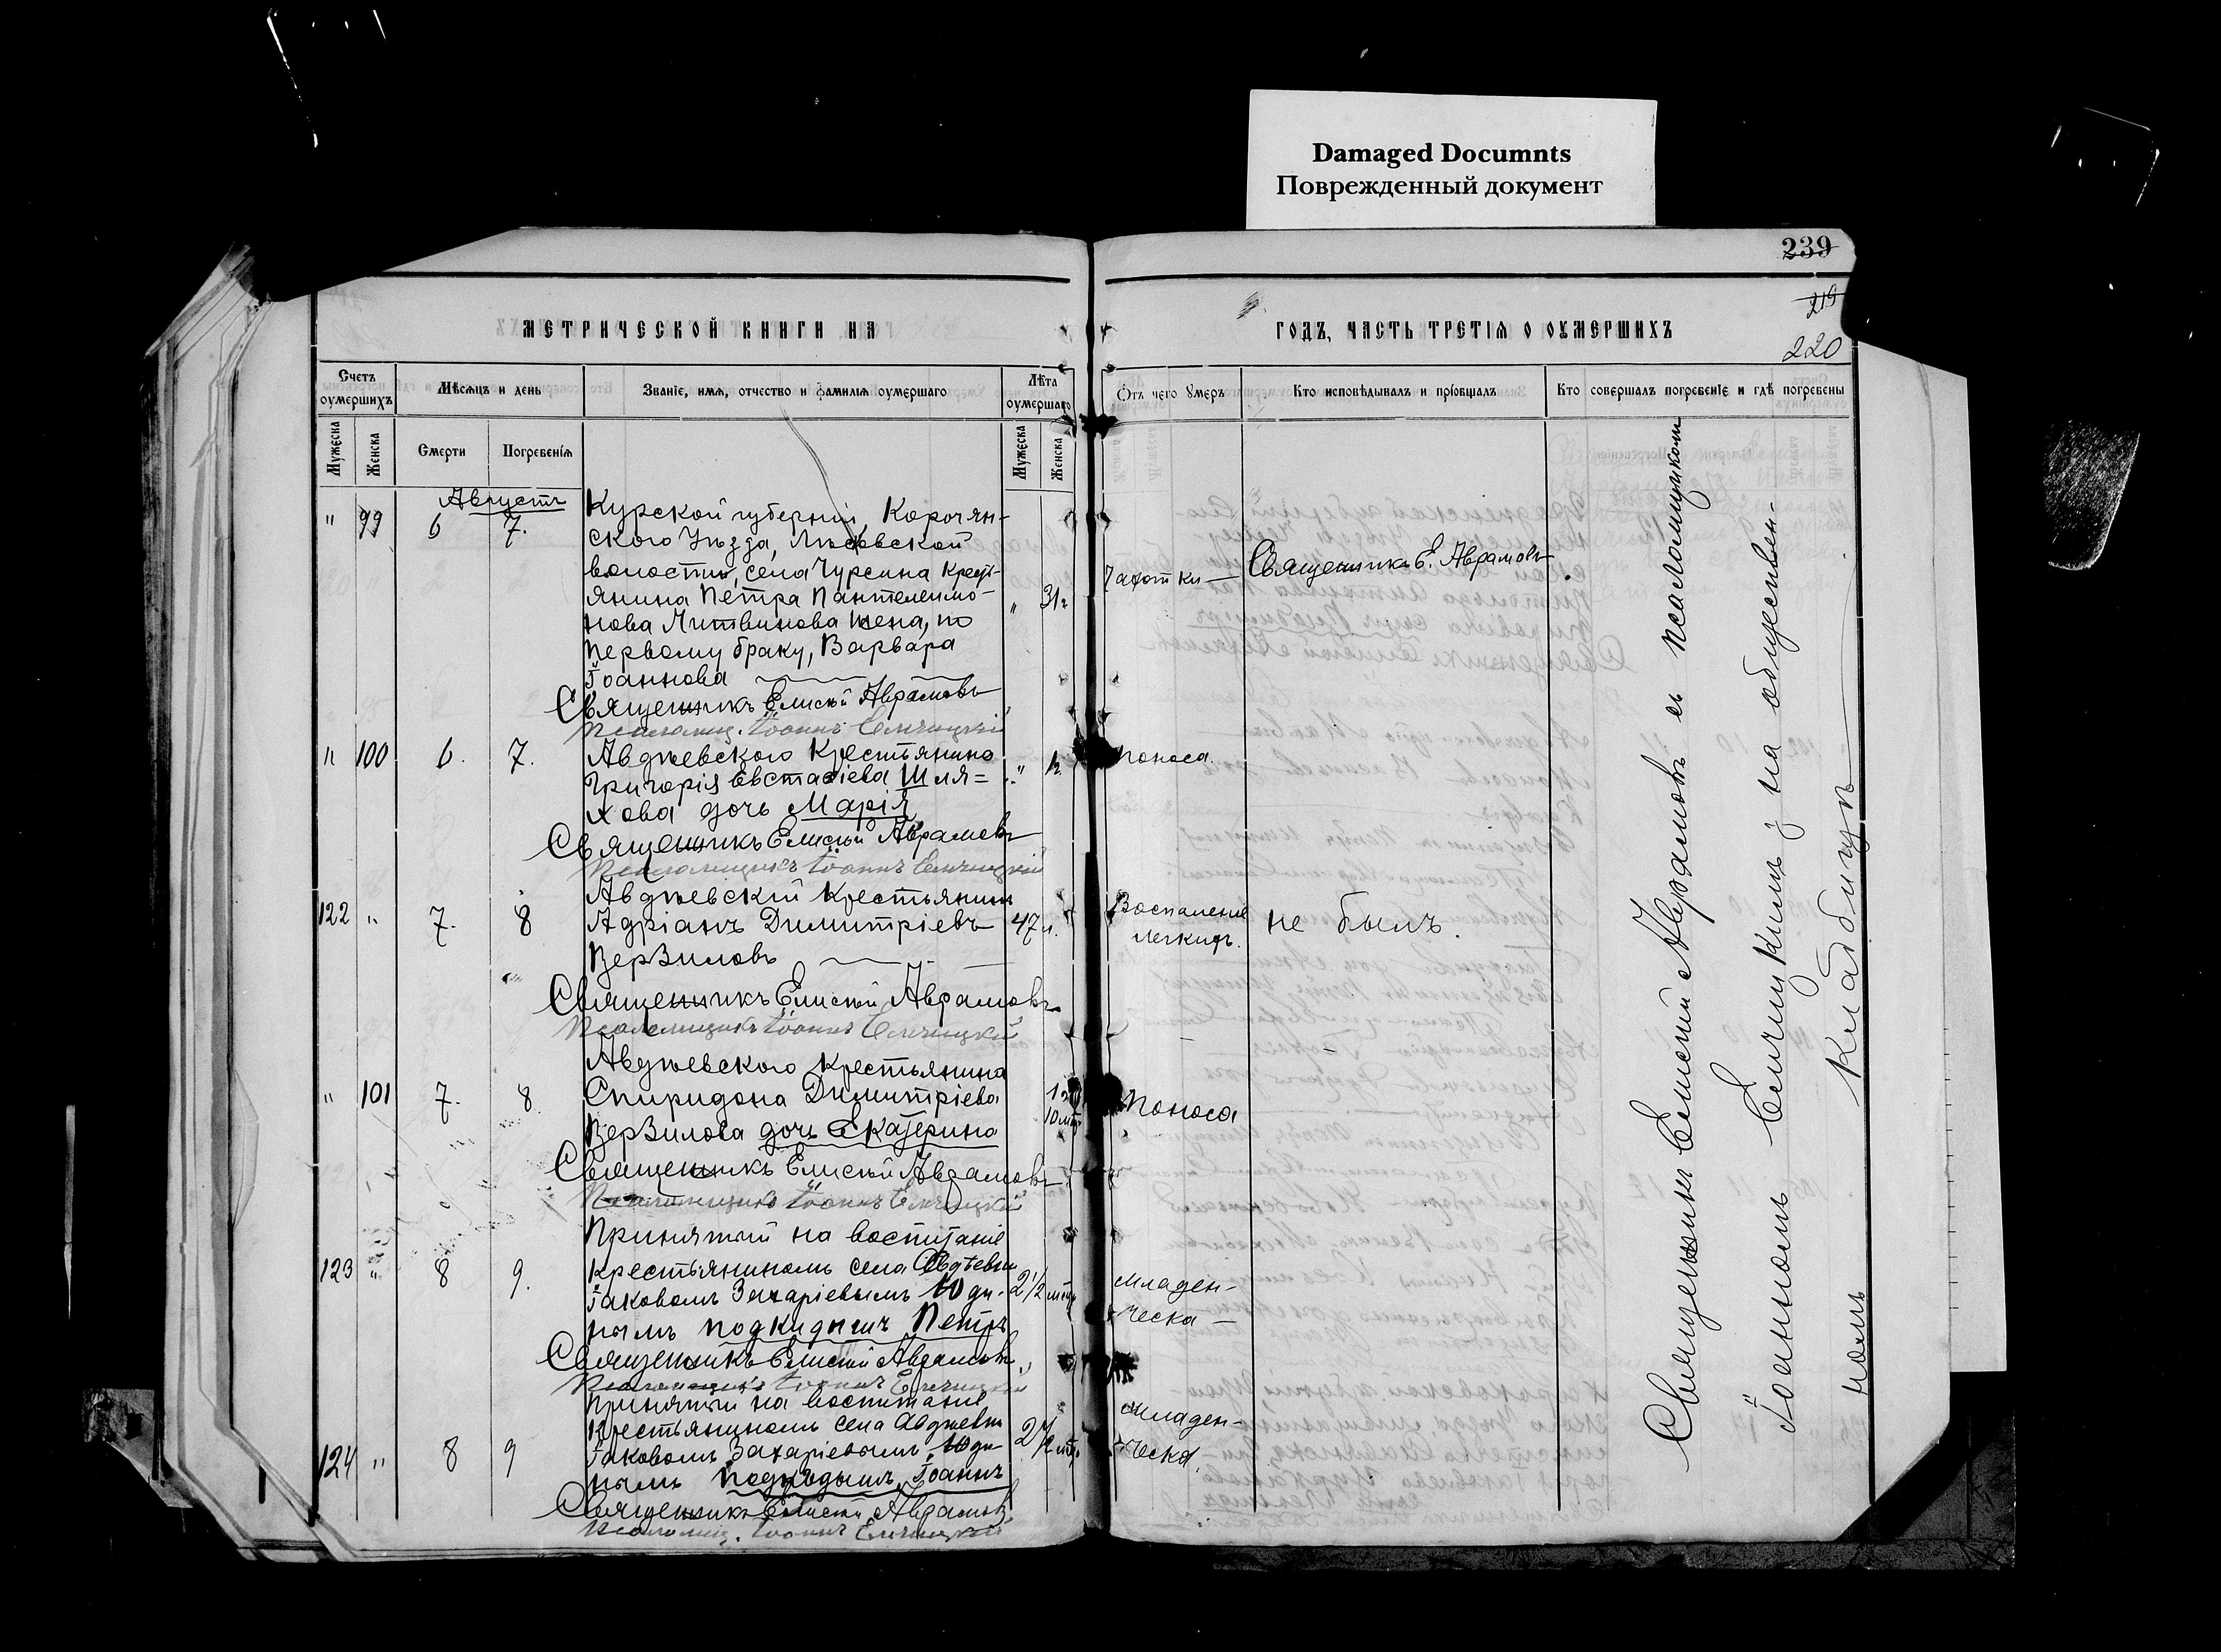 Damaged Documnts
Поврежденный документ
239
219
220
МЕТРИЧЕСКОЙ КНИГИ НА
ГОДЪ, ЧАСТЬ ТРЕТІѦ О ОУМЕРШИХЪ
Счетъ оумершихъ
Мѣсѧцъ и день
Званіе, имѧ, отчество и фамиліѧ оумершаго
Лѣта оумершаго
Ѿтъ чего умеръ
Кто исповѣдывалъ и пріобщалъ
Кто совершалъ погребеніе и гдѣ погребены
Мужеска
Женска
Смерти
Погребеніѧ
Мужеска
Женска
Августъ
" 99 6 7.
Курской губерніи, Корочан-
ского Уѣзда,
волости, села Чурсина Крест-
янина Петра Пантелеимо-
нова Литвинова жена, по
первому браку, Варвара
Іоаннова
" 31
Чахотки
Священникъ Е. Аврамовъ
Священникъ Елисей Аврамовъ
Псаломщ. Іоаннъ Елчицкій
" 100 6. 7.
Авдѣевского Крестьянина
Григорія Евстафіева Шля=
хова дочь Марія
"
Поноса.
Священникъ Елисей Аврамовъ
Псаломщикъ Іоаннъ Елчицкій
122 " 7. 8
Авдѣевскій Крестьянинъ
Адріанъ Димитріевъ
Верзиловъ
47 л.
Воспаленіе
легкихъ.
не былъ.
Священникъ Елисей Аврамовъ
Псаломщикъ Іоаннъ Елчицкій
" 101 7. 8.
Авдѣевского Крестьянина
Спиридона Димитріева
Верзилова дочь Екатерина
10 мѣс
Поноса
Священникъ Елисей Аврамовъ
Псаломщикъ Іоаннъ Елчицкій
123 " 8 9.
Принятый на воспитаніе
крестьяниномъ села Авдѣевки
Іаковомъ Захаріевымъ
нымъ подкидышъ Петръ
2½ мѣс
Младен-
ческа
Священникъ Елисей Аврамовъ
Псаломщикъ Іоаннъ Елчицкій
124 " 8 9
Принятый на воспитаніе
Крестьяниномъ села Авдѣевки
Іаковомъ Захаріевымъ
нымъ подкидышъ Іоаннъ
2½ мѣс
Младен-
ческа.
Священникъ Елисей Аврамовъ
Псаломщ. Іоаннъ Елчицкій
Священникъ Елисей Аврамовъ съ псаломщикомъ
Іоанномъ Елчицкимъ; на общественномъ
кладбищѣ